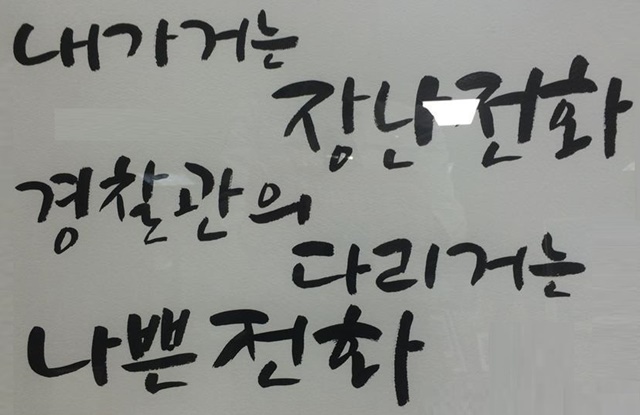 내가거는
장난전화
경찰관의
다리거는
나쁜전화